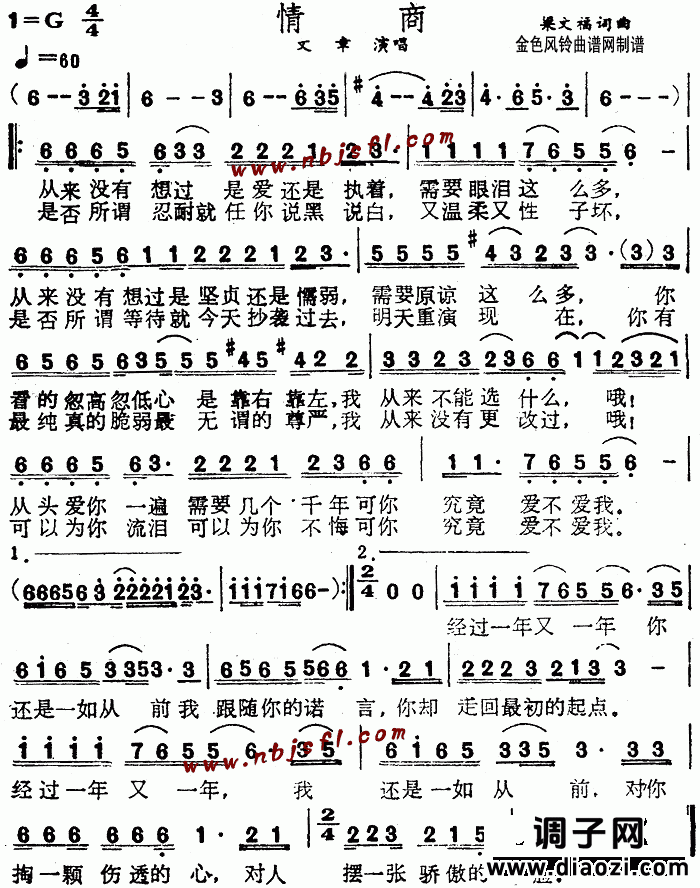 1=G 4/4 情 商 梁文福 词 曲
♩=60 文 章 演唱 金色风铃曲谱网制谱
( 6 - - 3 2 1 | 6 - - 3 | 6 - - 6 3 5 | #4 - - 4 2 3 | 4 · 6 5 · 3 | 6 - - - )
‖: 6 6 6 5 6 3 3 2 2 2 1 2 3 | 1 1 1 1 7 6 5 5 6 -
www.nbjsfl.com
从来没有 想过 是爱还是 执着, 需要眼泪这 么多,
是否所谓 忍耐就 任你说黑 说白, 又温柔又性 子坏,
6 6 6 5 6 1 1 2 2 2 1 2 3 · | 5 5 5 5 #4 3 2 3 3 · (3) 3
从来没有想过是坚贞还是懦弱, 需要原谅 这 么多, 你
是否所谓等待就今天抄袭过去, 明天重演现 在, 你有
6 5 6 5 6 5 6 3 5 5 #4 5 #4 2 2 | 3 3 2 3 2 3 6 6 1 1 1 2 3 2 1
看的忽高忽低心 是靠右 靠左,我 从来不能选 什么, 哦!
最纯真的脆弱最 无谓的 尊严,我 从来没有更 改过, 哦!
6 6 6 5 6 3 · 2 2 2 1 2 3 6 6 | 1 1 · 7 6 5 5 6 -
从头爱你 一遍 需要几个 千年可你 究竟 爱不爱我。
可以为你 流泪 可以为你 不悔可你 究竟 爱不爱我。
1. 2.
( 6 6 6 5 6 3 2 2 2 1 2 3 · | 1 1 1 7 1 6 6 - ) :‖ 2/4 0 0 | 1 1 1 1 7 6 5 5 6 · 3 5
经过一年又 一年 你
6 1 6 5 3 3 5 3 · 3 | 6 5 6 5 5 5 6 6 1 · 2 1 | 2 2 2 3 2 1 2 3 3 -
还是一如从 前我 跟随你的诺 言,你却 走回最初的起点。
1 1 1 1 7 6 5 5 6 3 5 | 6 1 6 5 3 3 5 3 · 3 3
www.nbjsfl.com
经过一年 又 一年, 我 还是一如 从 前,对你
6 6 6 6 6 6 6 1 · 2 1 | 2/4 2 2 3 2 1 5
掏一颗 伤透的 心,对人 摆一张 骄傲的
调子网
www.diaozi.com